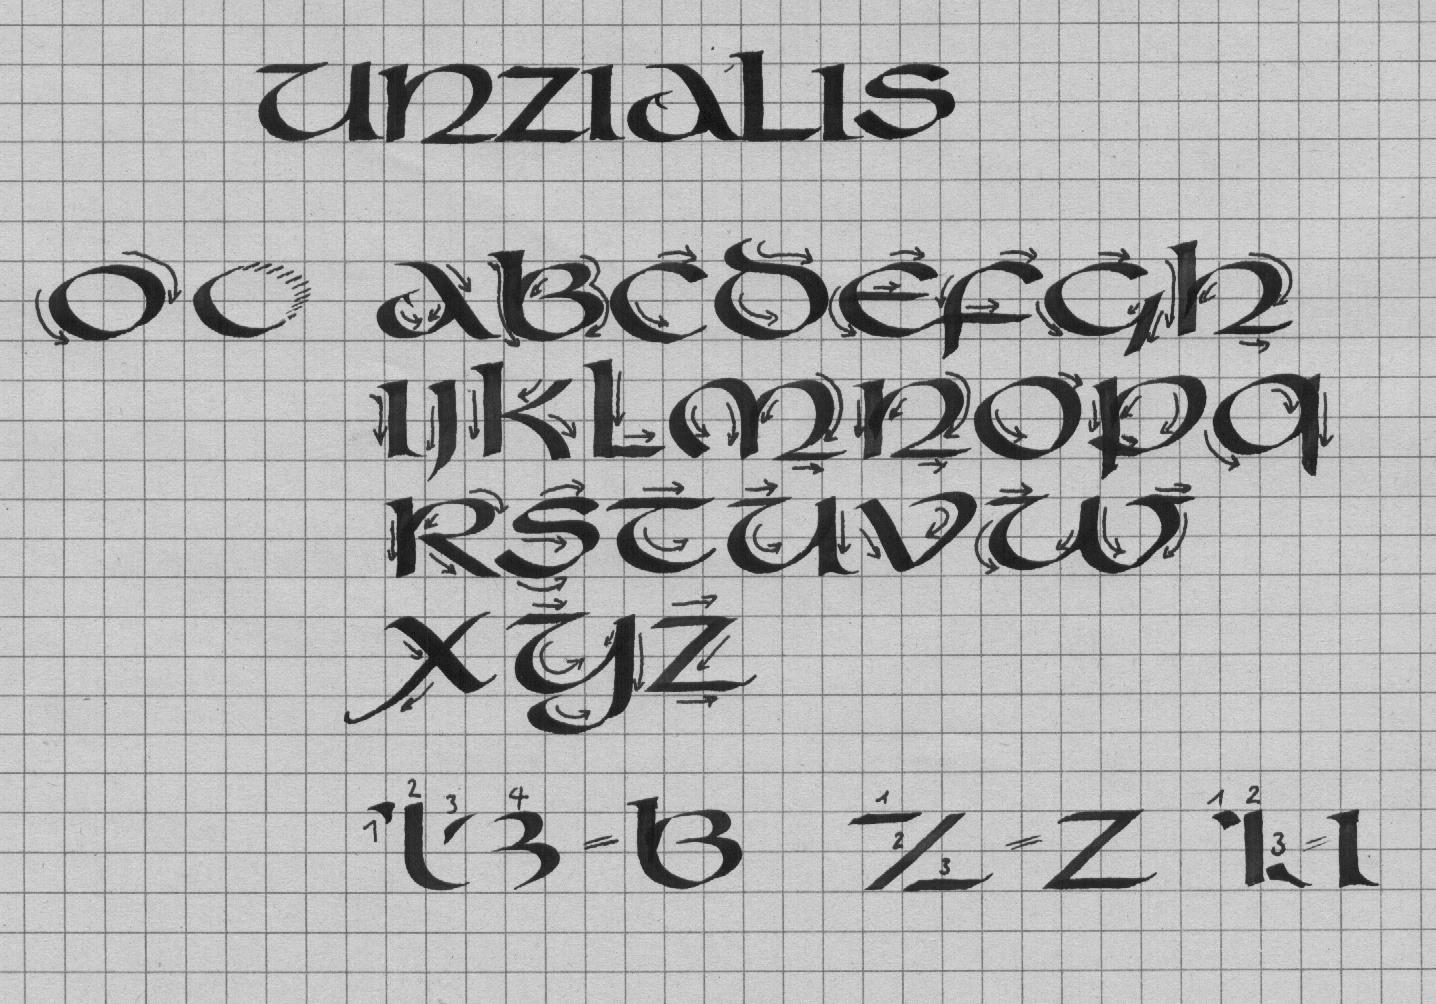 UNZIALIS
O C A B C D E F G H
I J K L M N O P Q
R S T U V W
X Y Z
1 2 3 4 = B 1 2 3 = Z 1 2 3 = I